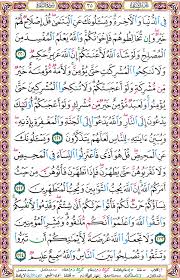 ٣٥
فِى ٱلدُّنْيَا وَٱلْءَاخِرَةِ وَيَسْـَٔلُونَكَ عَنِ ٱلْيَتَـٰمَىٰ قُلْ إِصْلَاحٌ لَّهُمْ
خَيْرٌ وَإِن تُخَالِطُوهُمْ فَإِخْوَٰنُكُمْ وَٱللَّهُ يَعْلَمُ ٱلْمُفْسِدَ مِنَ
ٱلْمُصْلِحِ وَلَوْ شَآءَ ٱللَّهُ لَأَعْنَتَكُمْ إِنَّ ٱللَّهَ عَزِيزٌ حَكِيمٌ ٢٢٠
وَلَا تَنكِحُوا۟ ٱلْمُشْرِكَـٰتِ حَتَّىٰ يُؤْمِنَّ وَلَأَمَةٌ مُّؤْمِنَةٌ خَيْرٌ
مِّن مُّشْرِكَةٍ وَلَوْ أَعْجَبَتْكُمْ وَلَا تُنكِحُوا۟ ٱلْمُشْرِكِينَ حَتَّىٰ
يُؤْمِنُوا۟ وَلَعَبْدٌ مُّؤْمِنٌ خَيْرٌ مِّن مُّشْرِكٍ وَلَوْ أَعْجَبَكُمْ أُو۟لَـٰٓئِكَ
يَدْعُونَ إِلَى ٱلنَّارِ وَٱللَّهُ يَدْعُوٓا۟ إِلَى ٱلْجَنَّةِ وَٱلْمَغْفِرَةِ بِإِذْنِهِۦ
وَيُبَيِّنُ ءَايَـٰتِهِۦ لِلنَّاسِ لَعَلَّهُمْ يَتَذَكَّرُونَ ٢٢١ وَيَسْـَٔلُونَكَ
عَنِ ٱلْمَحِيضِ قُلْ هُوَ أَذًى فَٱعْتَزِلُوا۟ ٱلنِّسَآءَ فِى ٱلْمَحِيضِ
وَلَا تَقْرَبُوهُنَّ حَتَّىٰ يَطْهُرْنَ فَإِذَا تَطَهَّرْنَ فَأْتُوهُنَّ مِنْ حَيْثُ
أَمَرَكُمُ ٱللَّهُ إِنَّ ٱللَّهَ يُحِبُّ ٱلتَّوَّٰبِينَ وَيُحِبُّ ٱلْمُتَطَهِّرِينَ ٢٢٢
نِسَآؤُكُمْ حَرْثٌ لَّكُمْ فَأْتُوا۟ حَرْثَكُمْ أَنَّىٰ شِئْتُمْ وَقَدِّمُوا۟ لِأَنفُسِكُمْ
وَٱتَّقُوا۟ ٱللَّهَ وَٱعْلَمُوٓا۟ أَنَّكُم مُّلَـٰقُوهُ وَبَشِّرِ ٱلْمُؤْمِنِينَ
٢٢٣ وَلَا تَجْعَلُوا۟ ٱللَّهَ عُرْضَةً لِّأَيْمَـٰنِكُمْ أَن تَبَرُّوا۟
وَتَتَّقُوا۟ وَتُصْلِحُوا۟ بَيْنَ ٱلنَّاسِ وَٱللَّهُ سَمِيعٌ عَلِيمٌ ٢٢٤